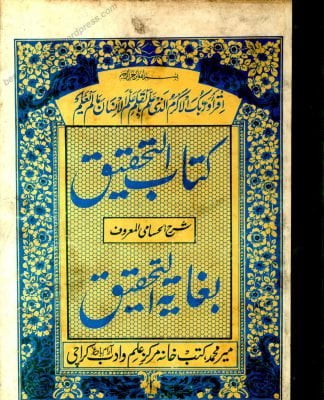 بسم الله الرحمن الرحيم
اقرأ وربك الأكرم الذي علم بالقلم علم الإنسان ما لم يعلم
كتاب التحقيق
شرح الحسامی المعروف
بغایة التحقیق
میر محمد کتب خانہ مرکز علم و ادب آرام باغ کراچی